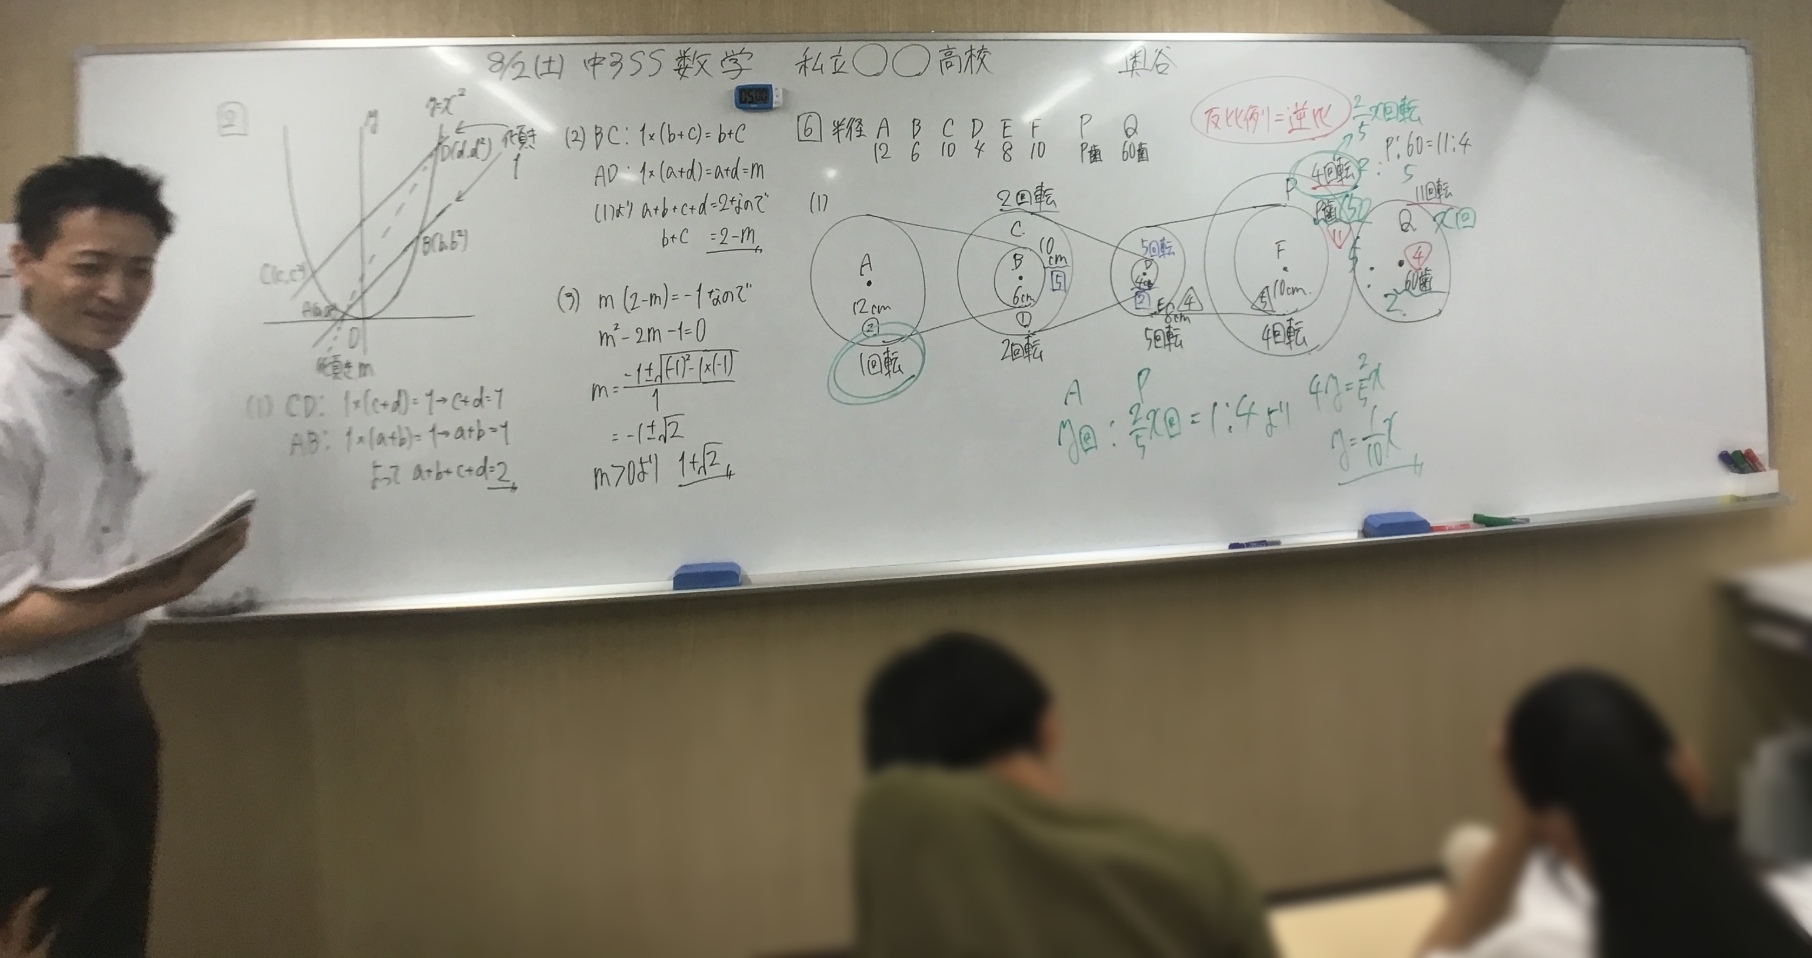 8/2(土) 中3SS 数学 私立〇〇高校 奥谷
2
y=x²
y
D(d,d²)
傾き
1
B(b,b²)
C(c,c²)
O
傾きm
(1) CD: 1×(c+d)=1→c+d=1
AB: 1×(a+b)=1→a+b=1
よって a+b+c+d=2
(2) BC: 1×(b+c)=b+c
AD: 1×(a+d)=a+d=m
(1)より a+b+c+d=2なので
b+c =2-m
(3) m(2-m)=-1なので
m²-2m-1=0
m=-1±√(-1)²-1×(-1)
1
=-1±√2
m>0より 1+√2
6 半径 A B C D E F P Q
12 6 10 4 8 10 P歯 60歯
反比例=逆比
2/5x回転
P:60=11:4
(1)
A
12cm
②
1回転
2回転
C
10cm
B
6cm
5
①
2回転
5回転
D
2
4
5回転
4回転
P
P歯
11
F
10cm
5
4回転
11回転
Q
x回
4
60歯
A P
y回:2/5x回=1:4より
4y=2/5x
y=1/10x